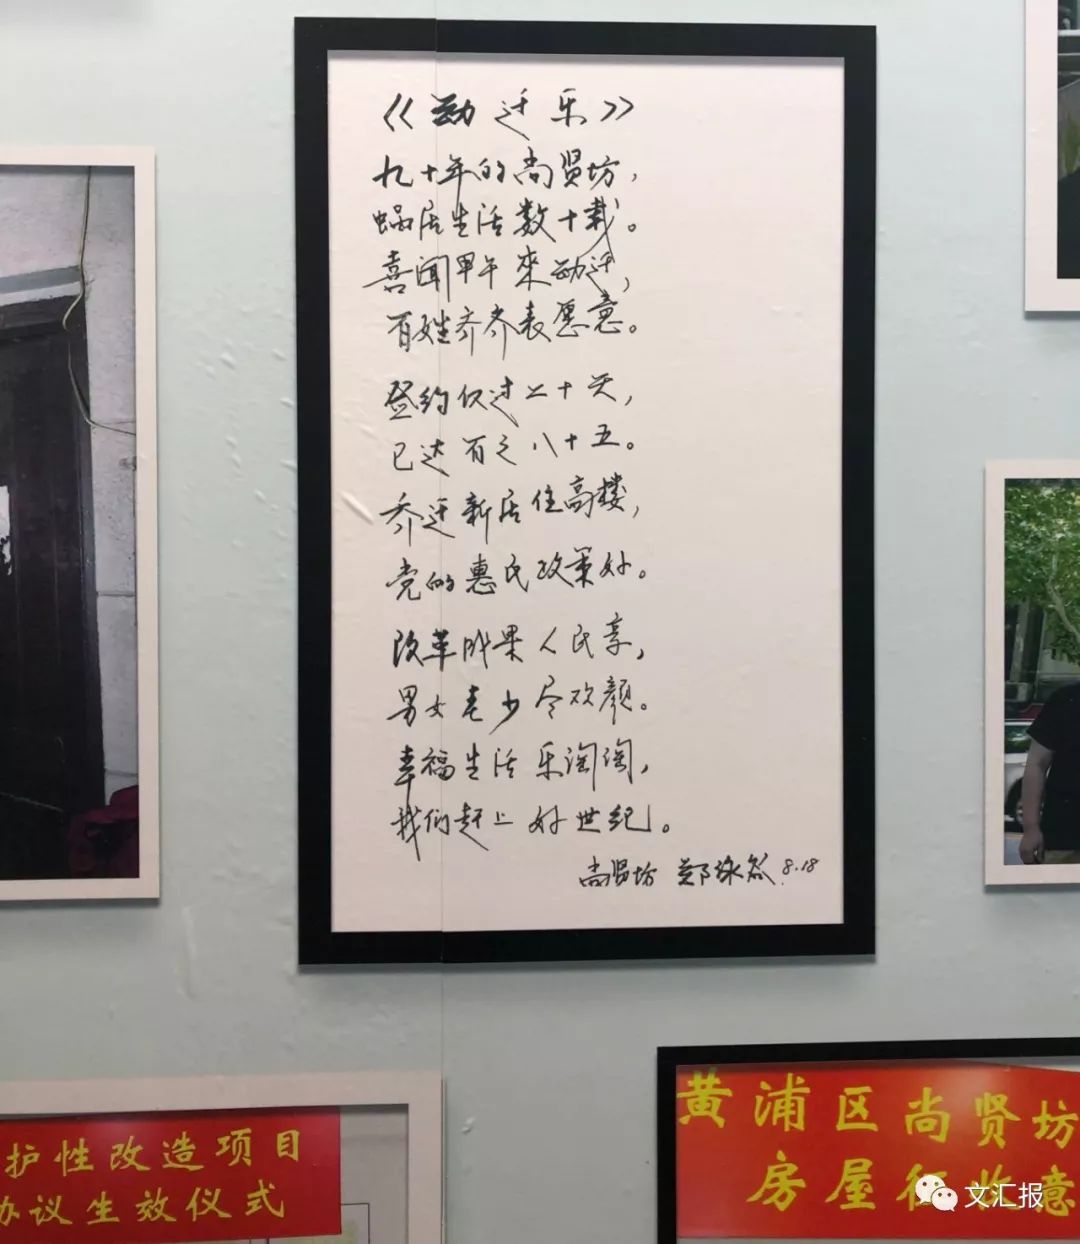 《动迁乐》
九十年的尚贤坊，
蜗居生活数十载。
喜闻甲午來动迁，
百姓齐齐表愿意。
登约仅过二十天，
已达百之八十五。
乔迁新居住高楼，
党的惠民政策好。
改革成果人民享，
男女老少尽欢颜。
幸福生活乐淘淘，
我们赶上好世纪。
尚贤坊 郑咏 8.18
护性改造项目
协议生效仪式
黄浦区尚贤坊
房屋征收意
文汇报